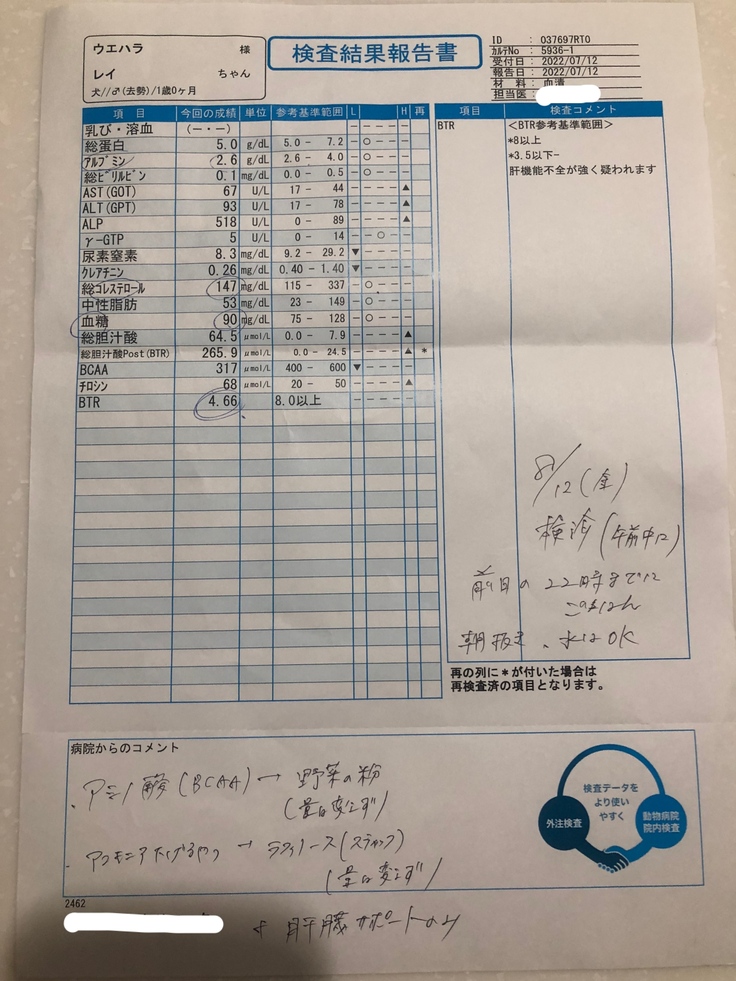 ウエハラ 様
レイ ちゃん
犬//♂(去勢)/1歳0ヶ月
検査結果報告書
ID : 037697RT0
ｶﾙﾃNo : 5936-1
受付日 : 2022/07/12
報告日 : 2022/07/12
材 料 : 血清
担当医 :
項 目 今回の成績 単位 参考基準範囲 L H 再
乳び・溶血 (－・－) － － － － －
総蛋白 5.0 g/dL 5.0 - 7.2 －○－－－
ｱﾙﾌﾞﾐﾝ 2.6 g/dL 2.6 - 4.0 －○－－－
総ﾋﾞﾘﾙﾋﾞﾝ 0.1 mg/dL 0.0 - 0.5 －○－－－
AST(GOT) 67 U/L 17 - 44 －－－－▲
ALT(GPT) 93 U/L 17 - 78 －－－－▲
ALP 518 U/L 0 - 89 －－－－▲
γ-GTP 5 U/L 0 - 14 －－○－－
尿素窒素 8.3 mg/dL 9.2 - 29.2 ▼－－－－
ｸﾚｱﾁﾆﾝ 0.26 mg/dL 0.40 - 1.40 ▼－－－－
総ｺﾚｽﾃﾛｰﾙ 147 mg/dL 115 - 337 －○－－－
中性脂肪 53 mg/dL 23 - 149 －○－－－
血糖 90 mg/dL 75 - 128 －○－－－
総胆汁酸 64.5 μmol/L 0.0 - 7.9 －－－－▲
総胆汁酸Post(BTR) 265.9 μmol/L 0.0 - 24.5 －－－－▲ *
BCAA 317 μmol/L 400 - 600 ▼－－－－
ﾁﾛｼﾝ 68 μmol/L 20 - 50 －－－－▲
BTR 4.66 8.0以上 －－－－－
項目 検査コメント
BTR <BTR参考基準範囲>
*8以上
*3.5以下-
肝機能不全が強く疑われます
8/12(金)
検診(午前中に)
前日の22時までに
ごはん
朝抜き、水はOK
再の列に＊が付いた場合は
再検査済の項目となります。
病院からのコメント
・アミノ酸(BCAA)→野菜の粉
(量は変えず)
・アンモニア下げるやつ → ラクツロース(スティック)
(量は変えず)
検査データを
より使い
やすく
外注検査
動物病院
院内検査
2462
肝臓サポートのみ